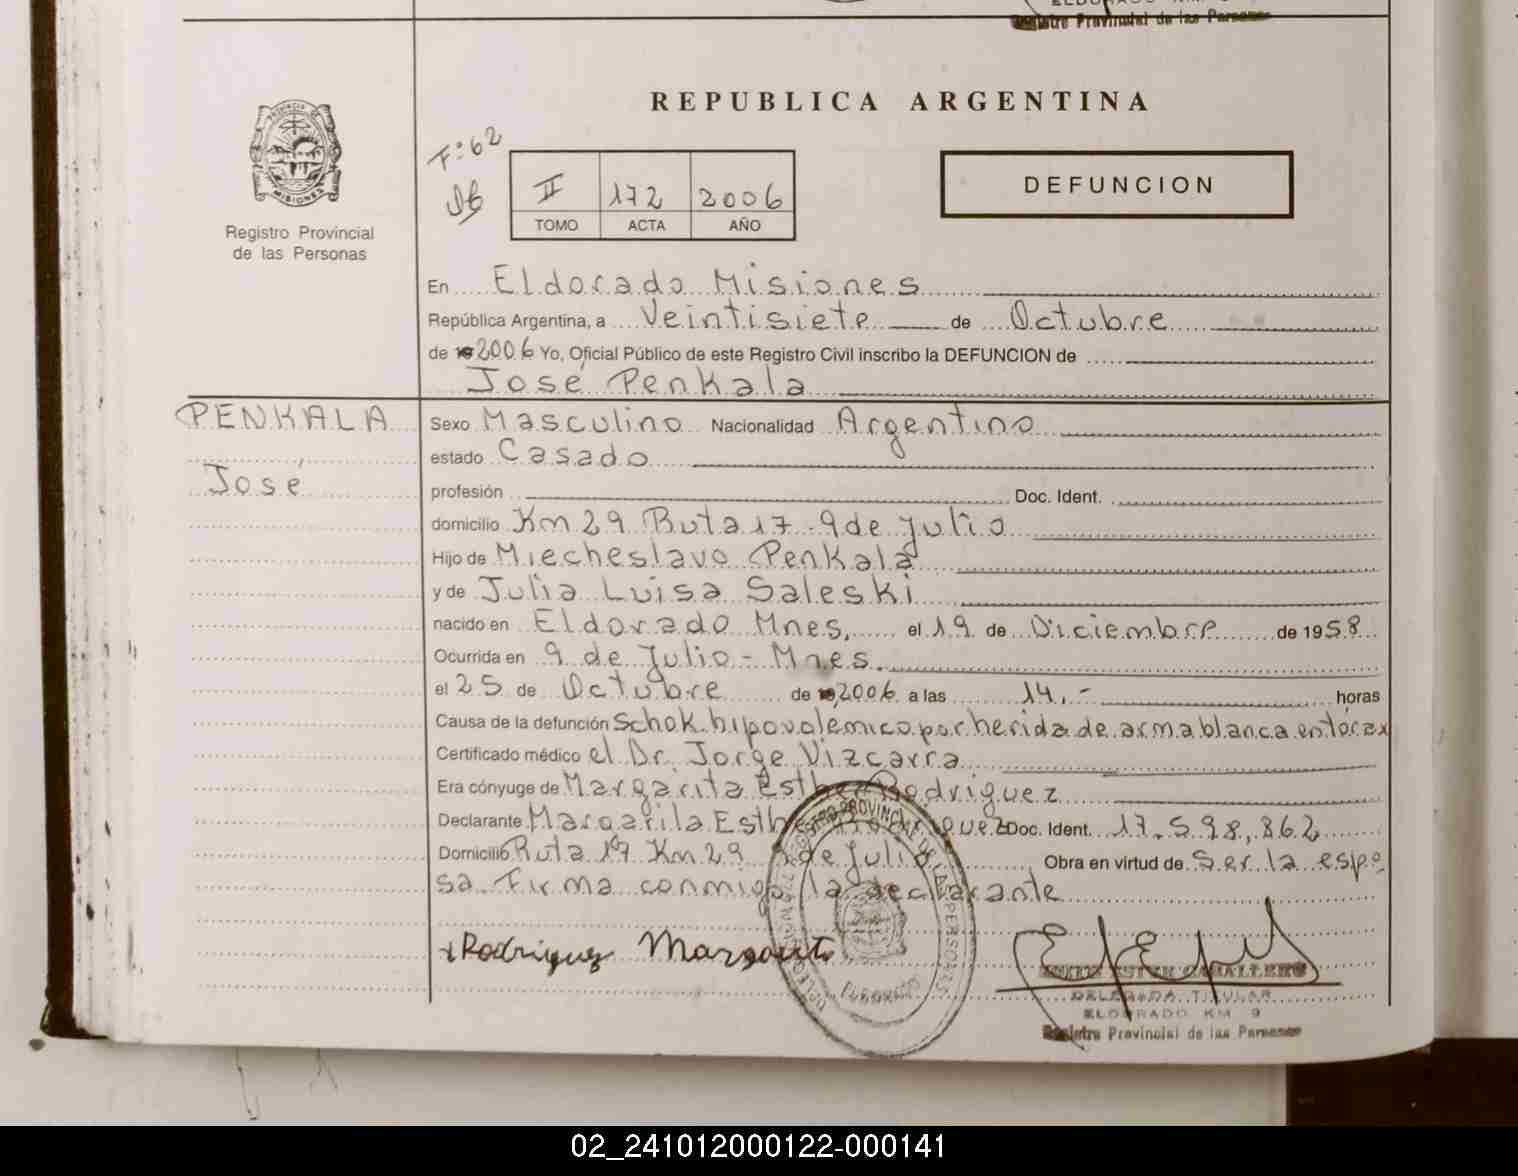 Registro Provincial de las Personas
REPUBLICA ARGENTINA
PROVINCIA DE
MISIONES
Registro Provincial
de las Personas
Fº 62
II 172 2006
TOMO ACTA AÑO
DEFUNCION
En Eldorado Misiones
República Argentina, a Veintisiete de Octubre
de 2006 Yo, Oficial Público de este Registro Civil inscribo la DEFUNCION de
José Penkala
PENKALA
José
Sexo Masculino Nacionalidad Argentino
estado Casado
profesión Doc. Ident.
domicilio Km 29 Ruta 17 - 9 de Julio
Hijo de Miecheslavo Penkala
y de Julia Luisa Saleski
nacido en Eldorado Mnes, el 19 de Diciembre de 1958
Ocurrida en 9 de Julio - Mnes.
el 25 de Octubre de 2006 a las 14.- horas
Causa de la defunción Schok hipovolemico por herida de arma blanca en torax
Certificado médico el Dr. Jorge Vizcarra
Era cónyuge de Margarita Esther Rodriguez
Declarante Margarita Esther Rodriguez Doc. Ident. 17.598,862
Domicilio Ruta 17 Km 29 9 de Julio Obra en virtud de Ser la espo
sa Firma conmigo la declarante
Rodriguez Margarita
REGISTRO PROVINCIAL DE LAS PERSONAS
ELDORADO
ESTER CABALLERO
DELEGADA TITULAR
ELDORADO KM 9
Registro Provincial de las Personas
02_241012000122-000141